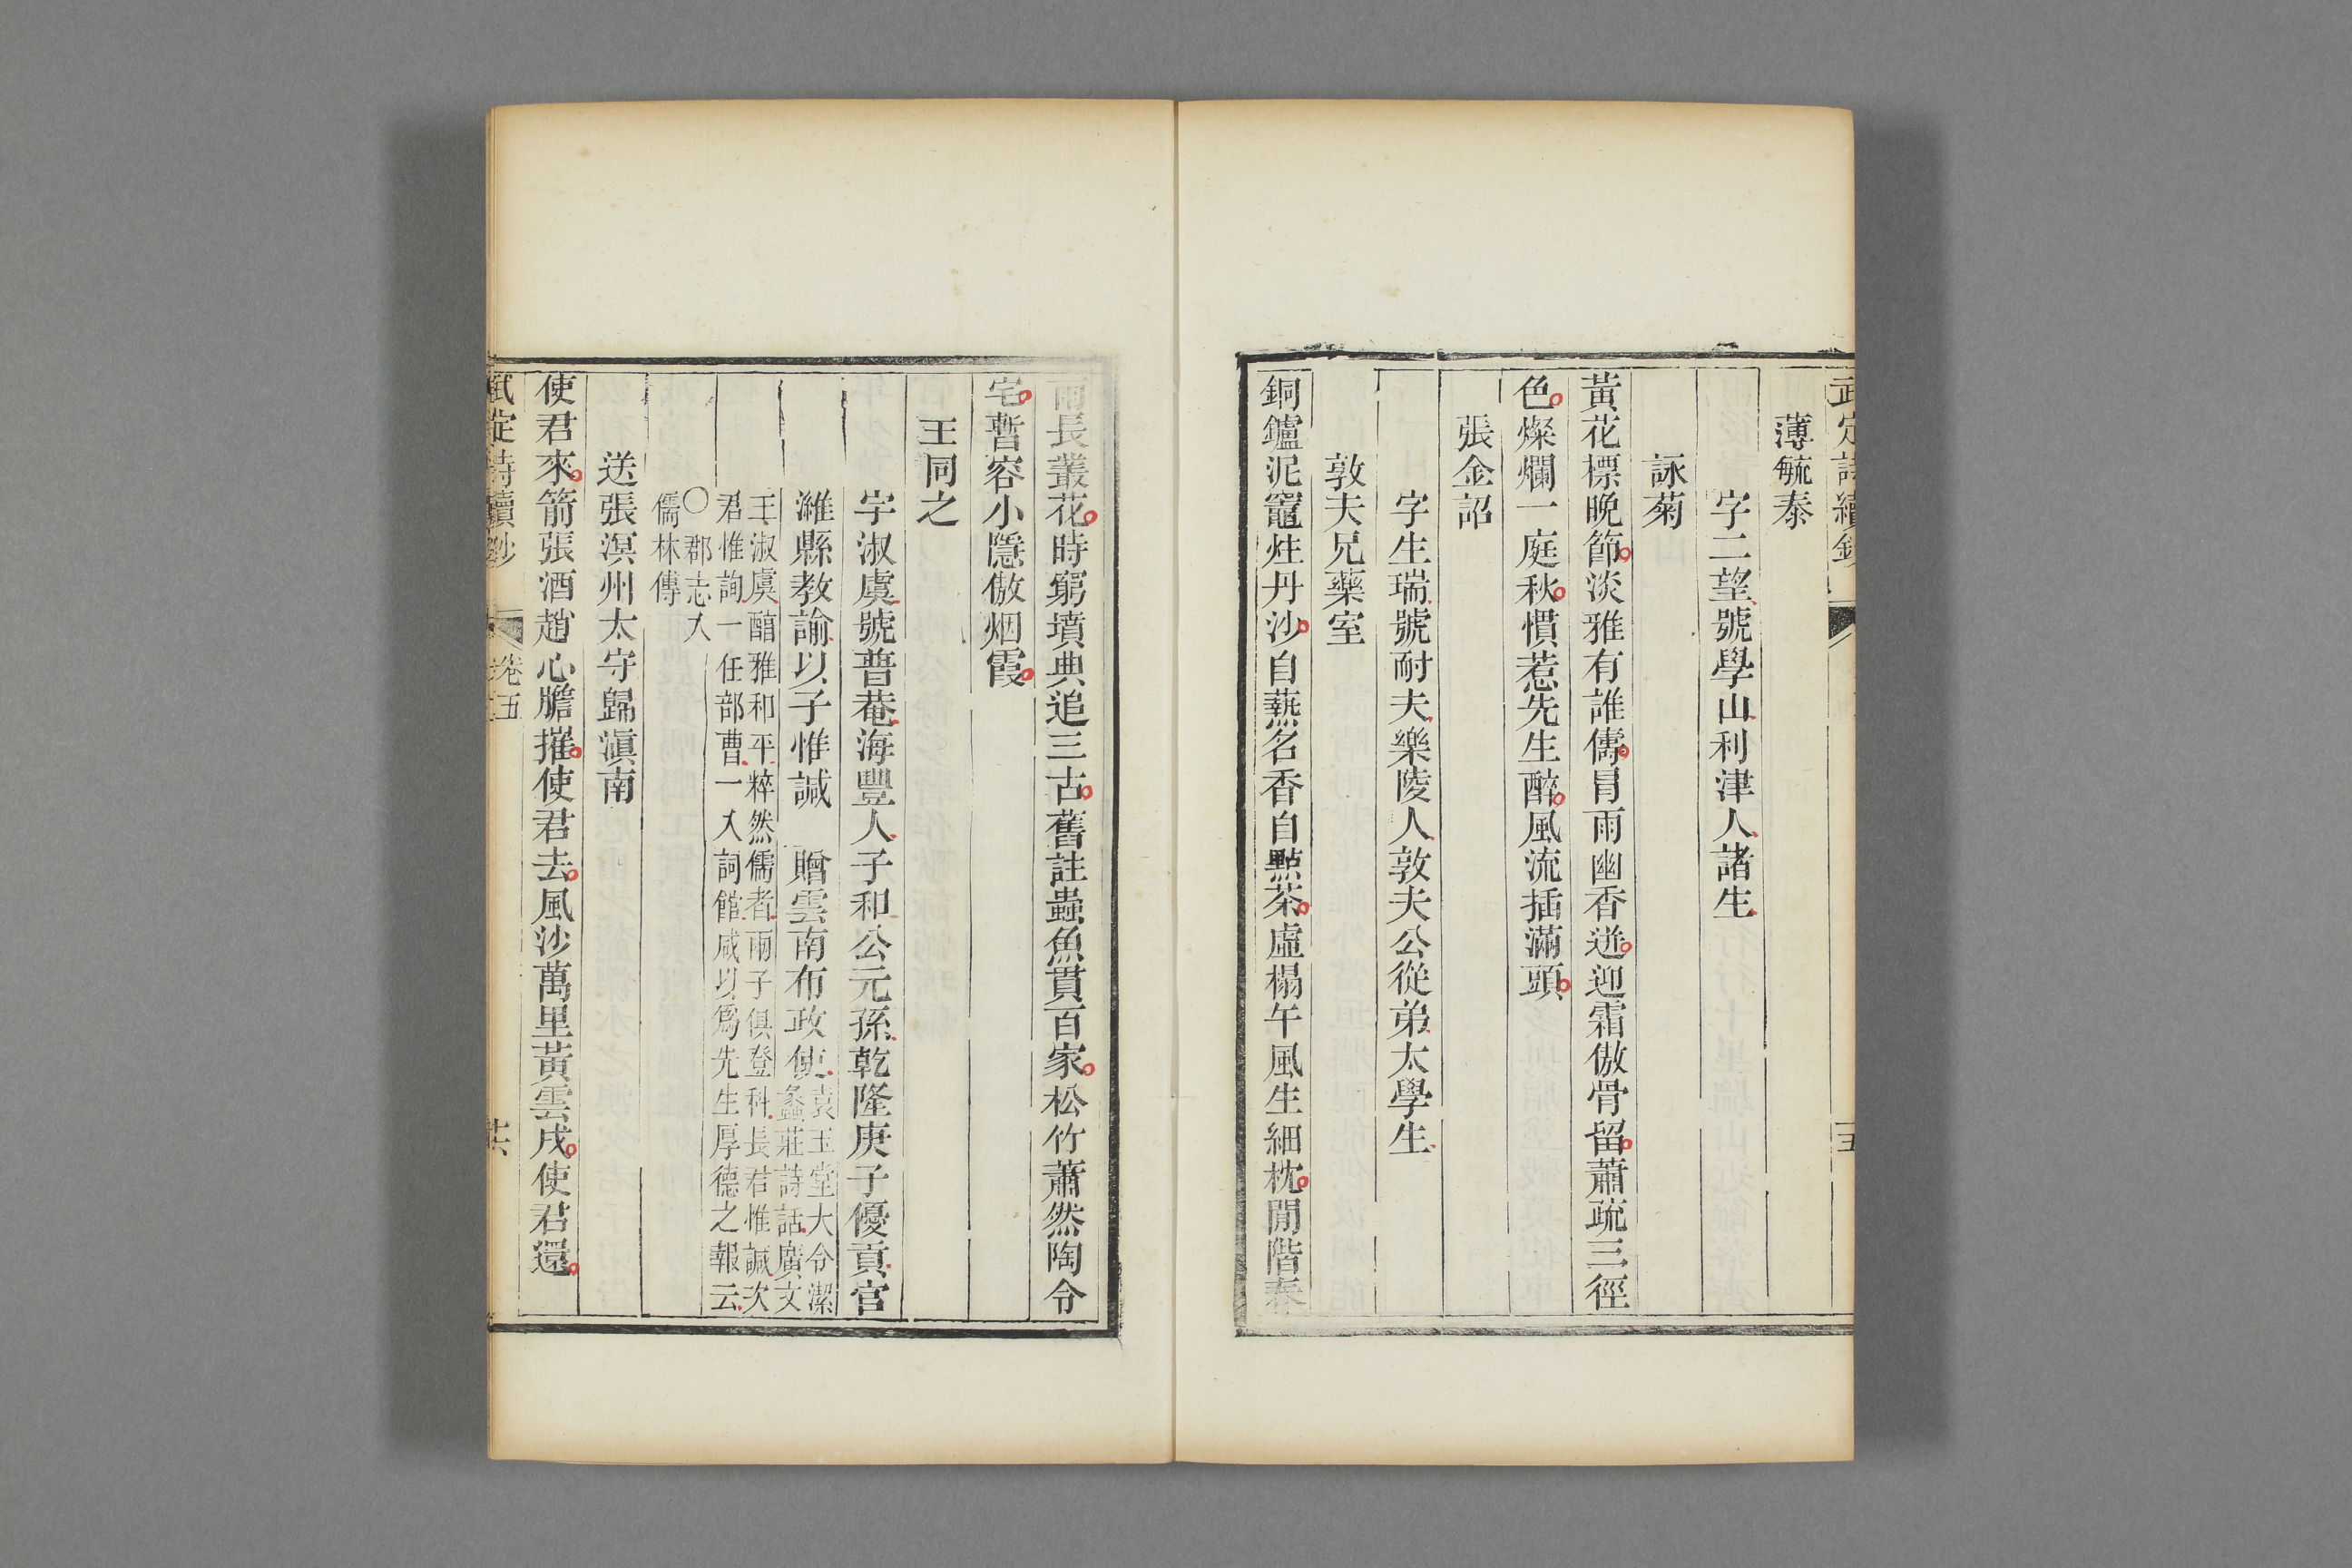 武定詩續鈔
薄毓泰
字二望號學山利津人諸生
詠菊
黃花標晚節淡雅有誰儔冐雨幽香迸迎霜傲骨留蕭疏三徑
色燦爛一庭秋慣惹先生醉風流插滿頭
張金詔
字生瑞號耐夫樂陵人敦夫公從弟太學生
敦夫兄藥室
銅鑪泥竈炷丹沙自爇名香自㸃茶虛榻午風生細枕閒階春
雨長叢花時窮墳典追三古舊註蟲魚貫百家松竹蕭然陶令
宅暫容小隱傲烟霞
王同之
字淑虞號普菴海豐人子和公元孫乾隆庚子優貢官
濰縣教諭以子惟諴 贈雲南布政使袁玉堂大令潔
蠡莊詩話廣文
王淑虞醕雅和平粹然儒者兩子俱登科長君惟諴次
君惟詢一任部曹一入詞館咸以爲先生厚德之報云
〇郡志入
儒林傳
送張溟州太守歸滇南
使君來箭張酒趙心膽摧使君去風沙萬里黃雲戍使君還
武定詩續鈔 卷五